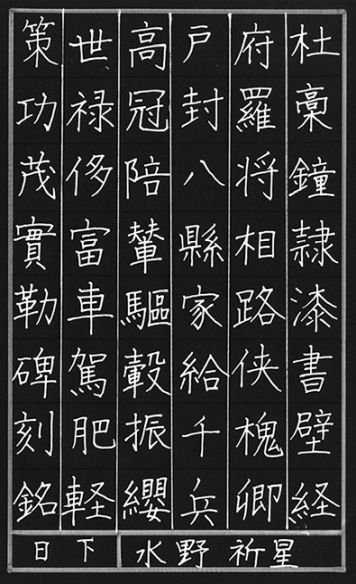 杜稾鐘隷漆書壁経
府羅将相路侠槐卿
戸封八縣家給千兵
高冠陪輦驅轂振纓
世禄侈富車駕肥軽
策功茂實勒碑刻銘
日下 水野 祈星